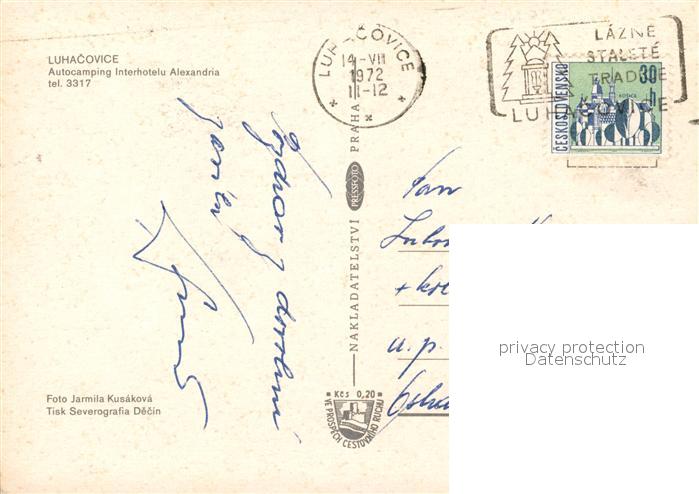 LUHAČOVICE
Autocamping Interhotelu Alexandria
tel. 3317
LUHAČOVICE
14.-VII
1972
11-12
LÁZNĚ
STALETÉ
TRADICE
LUHAČOVICE
ČESKOSLOVENSKO
30
h
Pozdrav z dovolené
NAKLADATELSTVÍ PRESSFOTO PRAHA
Pan
+ kol
u.p.
privacy protection
Datenschutz
Foto Jarmila Kusáková
Tisk Severografia Děčín
Kčs 0,20
VE PROSPĚCH CESTOVNÍHO RUCHU